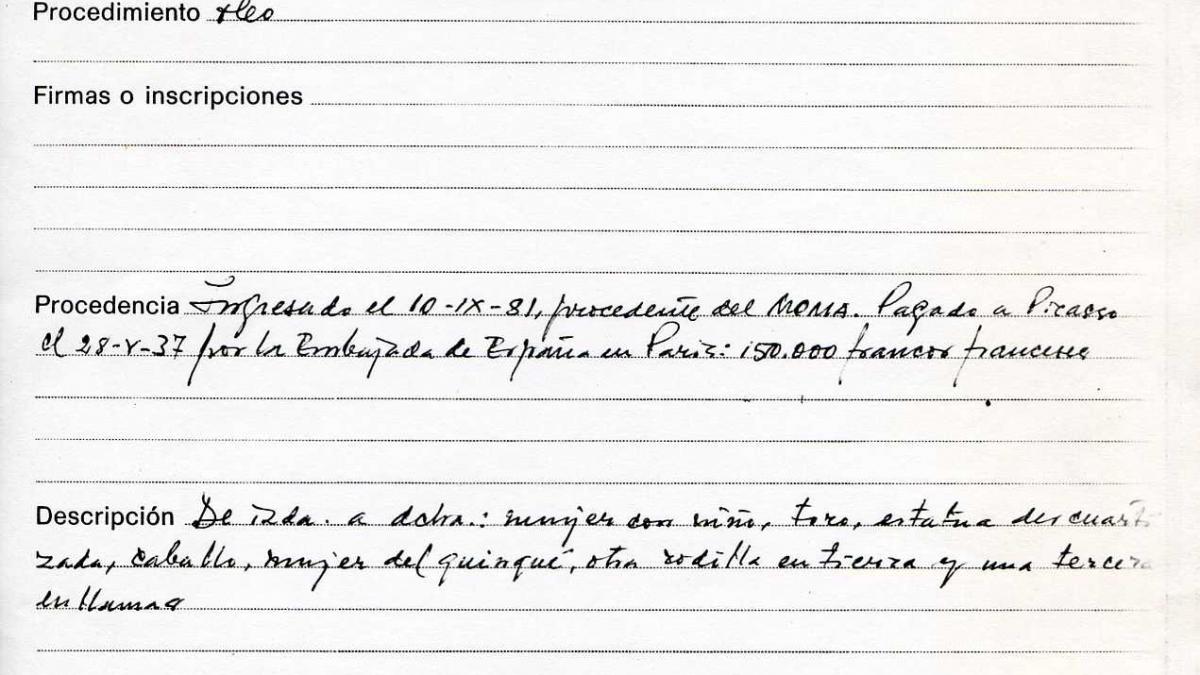 Procedimiento óleo
Firmas o inscripciones
Procedencia Ingresado el 10-IX-81, procedente del MOMA. Pagado a Picasso
el 28-V-37 por la Embajada de España en París: 150.000 francos franceses
Descripción De izda. a dcha.: mujer con niño, toro, estatua descuarti
zada, caballo, mujer del quinqué, otra rodilla en tierra y una tercera
en llamas